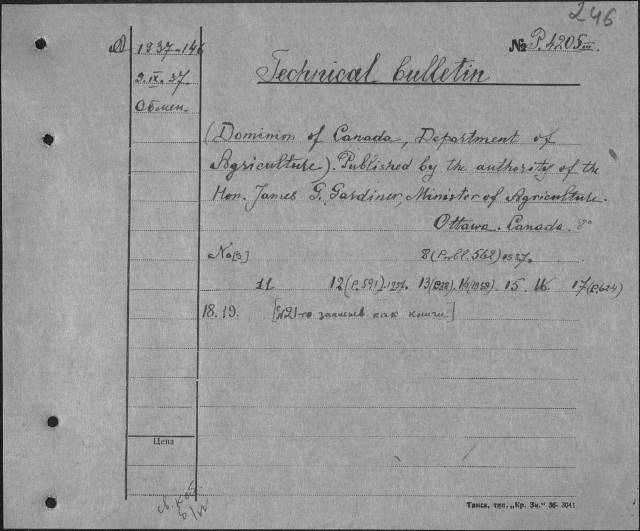 246
№ P. 4205III.
1937-146
2.IX.37.
Обмен.
Technical bulletin
(Dominion of Canada, Department of
Agriculture). Published by the authority of the
Hon. James G. Gardiner, Minister of Agriculture.
Ottawa. Canada. 8°
No[3] 8(Publ.562)1937.
11 12(P.591).1937. 13(1938). 14(1938). 15. 16. 17(P.624)
18. 19. [21-го записыв. как книги.]
Цена
Томск, тип. „Кр. Зн." 36- 3041